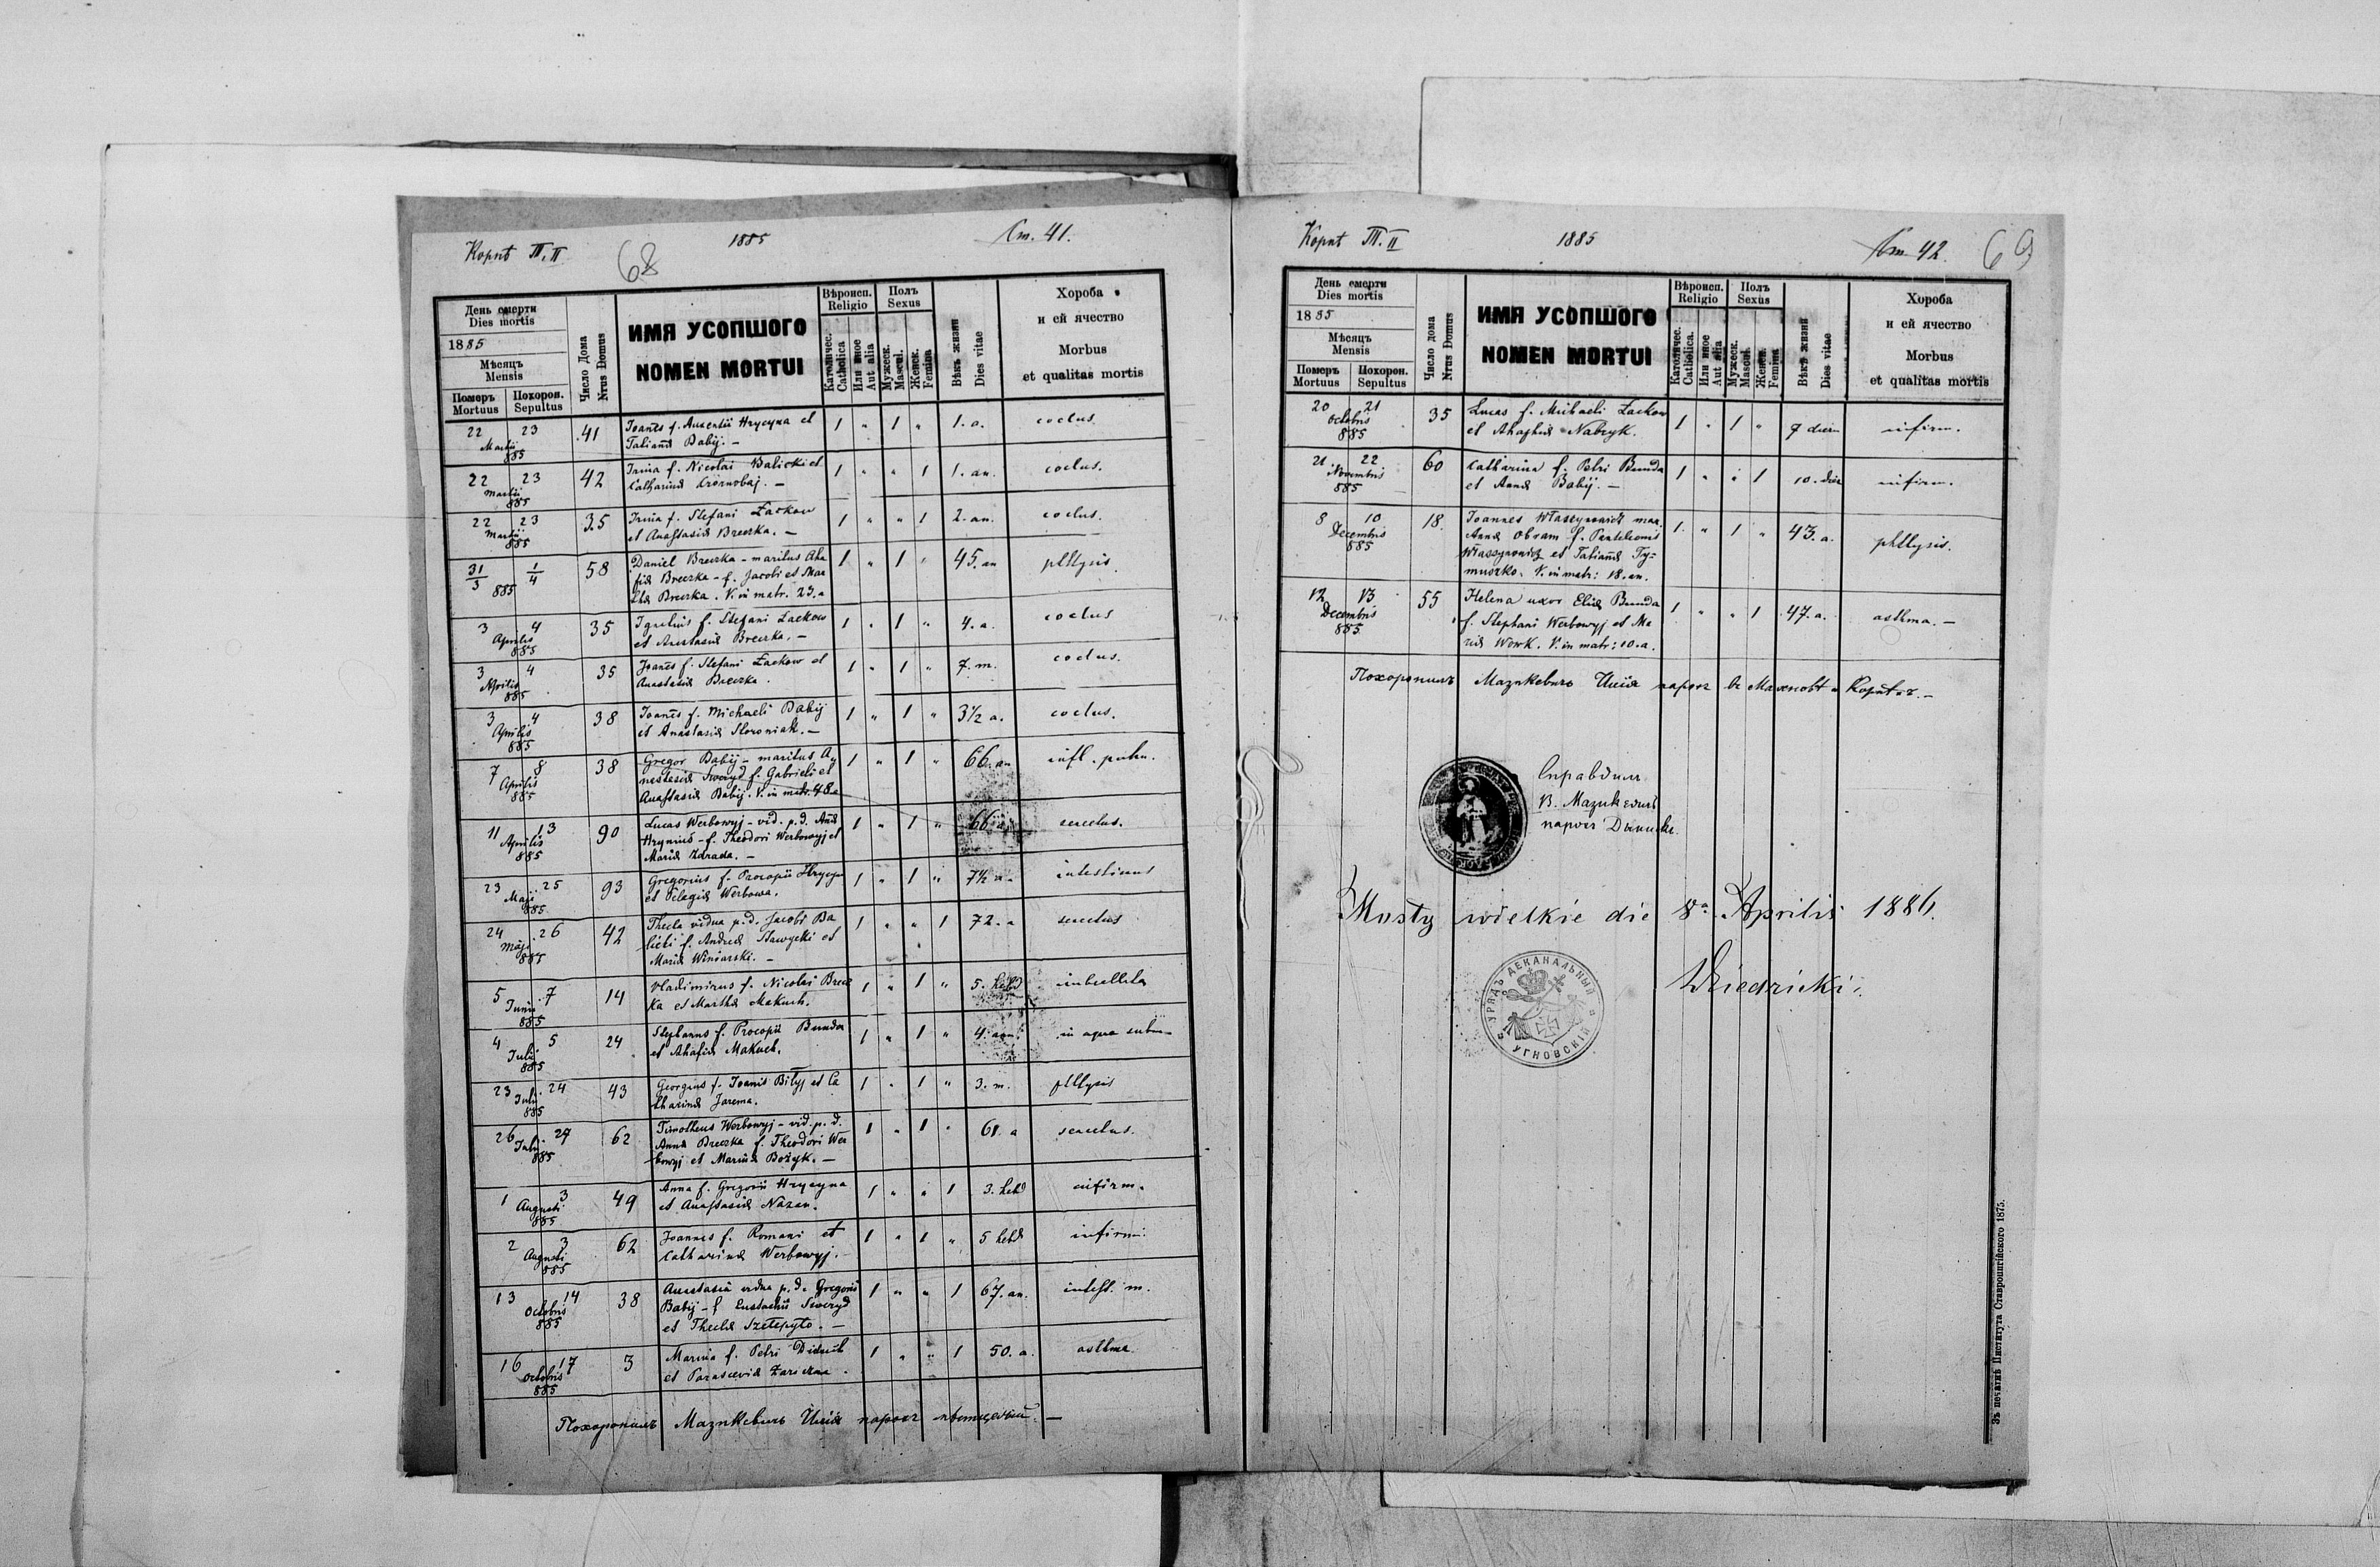 Корнѣ Т. II
68
1885
Ст. 41.
День смерти
Dies mortis
1885
Мѣсяцъ
Mensis
Померъ
Mortuus
Похорон.
Sepultus
Число Дома
Nrus Domus
ИМЯ УСОПШОГО
NOMEN MORTUI
Вѣроисп.
Religio
Католичес.
Catholica
Или иное
Aut alia
Полъ
Sexus
Мужеск.
Mascul.
Женск.
Femina
Вѣкъ жизни
Dies vitae
Хороба
и ей ячество
Morbus
et qualitas mortis
22 23 41 Joannes f. Auxentii Hrycyna et 1 " 1 " 1. a. coctus
Martii Tatiana Babij. –
885
22 23 42 Irina f. Nicolai Balicki et 1 " " 1 1. an. coctus.
Martii Catharina Czornobaj. –
885
22 23 35 Irina f. Stefani Łackow 1 " " 1 2. an. coctus.
Martii et Anastasia Breczka. –
885
31/3 1/4 58 Daniel Breczka – maritus Aha 1 " 1 " 45. an phtysis
885 fia Breczka – f. Jacobi et Mar
tha Breczka. V. in matr. 23. a
3 4 35 Ignatius f. Stefani Łackow 1 " 1 " 4. a. coctus
Aprilis et Anastasia Breczka. –
885
3 4 35 Joanes f. Stefani Łackow et 1 " 1 " 7. m. coctus.
Aprilis Anastasia Breczka.
885
3 4 38 Joannes f. Michaeli Babij 1 " 1 " 3 1/2 a. coctus.
Aprilis et Anastasia Storoniak. –
885
7 8 38 Gregor Babij – maritus A 1 " 1 " 66. an infl. pulm.
Aprilis nastasia Sweryd f. Gabrieli et
885 Anastasia Babij. V. in matr. 48. a
11 13 90 Lucas Werbowyj – vid. p. d. Anna 1 " 1 " 66. a senectus.
Aprilis Hrynius – f. Theodori Werbowyj et
885 Maria Zdrada. –
23 25 93 Gregorius f. Procopii Hrycyn 1 " 1 " 7 1/2 a. intestinus
Maji et Pelagia Werbowa.
885
24 26 42 Thecla vidua p. d. Jacobi Ba 1 " " 1 72. a senectus
Maji licki f. Andrea Sawycki et
885 Maria Winiarski. –
5 7 14 Vladimirus f. Nicolai Brecz 1 " 1 " 5. hebd
Junii ka et Martha Makuch.
885
4 5 24 Stephanus f. Procopii Bunda 1 " 1 " 4. ann. in aqua subm
Julii et Ahafia Makuch.
885
23 24 43 Georgius f. Joanis Biłyj et Ca 1 " 1 " 3. m. phtysis
Julii tharina Jarema.
885
26 27 62 Timotheus Werbowyj – vid. p. d. 1 " 1 " 61. a senectus.
Julii Anna Breczka f. Theodori Wer
885 bowyj et Maria Bożyk. –
1 3 49 Anna f. Gregorii Hrycyna 1 " " 1 3. hebd infirm.
Augusti et Anastasia Nazar.
885
2 3 62 Joannes f. Romani et 1 " 1 " 5 hebd infirm.
Augusti Catharina Werbowyj.
885
13 14 38 Anastasia vidua p. d. Gregorii 1 " " 1 67. an. intest. m.
Octobris Babij – f. Eustachii Sweryd
885 et Thecla Szelepyto. –
16 17 3 Marina f. Petri Didach 1 " " 1 50. a. asthma
Octobris et Parascevia
885
Похоронилъ Мазикевичъ Илія парохъ мѣстцевый. –
Корнѣ Т. II
1885
Ст. 42.
69
День смерти
Dies mortis
1885
Мѣсяцъ
Mensis
Померъ
Mortuus
Похорон.
Sepultus
Число дома
Nrus Domus
ИМЯ УСОПШОГО
NOMEN MORTUI
Вѣроисп.
Religio
Католичес.
Catholica.
Или иное
Aut alia
Полъ
Sexus
Мужеск.
Mascul.
Женск.
Femina
Вѣкъ жизни
Dies vitae
Хороба
и ей ячество
Morbus
et qualitas mortis
20 21 35 Lucas f. Michaeli Łackow 1 " 1 " 7 dieru infirm.
Octobris et Ahaphia Nabzyk.
885
21 22 60 Catharina f. Petri Bunda 1 " " 1 10. dier infirm.
Novembris et Anna Babij. –
885
8 10 18. Joannes Właszynowicz mar. 1. " 1 " 43. a. phtysis.
Decembris Anna Obram f. Panteleonis
885 Właszynowicz et Tatiana Ty=
muszko. V. in matr: 18. an.
12 13 55 Helena uxor Elia Bunda 1 " " 1 47. a. asthma. –
Decembris f. Stephani Werbowyj et Ma
885 ria Wowk. V. in matr: 10. a.
Похоронилъ Мазикевичъ Илія парохъ въ Махновѣ и Корнѣхъ. –
Справдилъ
В. Мазикевичъ
парохъ Диниска
Mosty wielkie die 8a Aprilis 1886.
Dziedzicki
УРЯДЪ ДЕКАНАЛЬНЫЙ
УГНОВСКІЙ
Зъ печатнѣ Института Ставропигійского 1875.